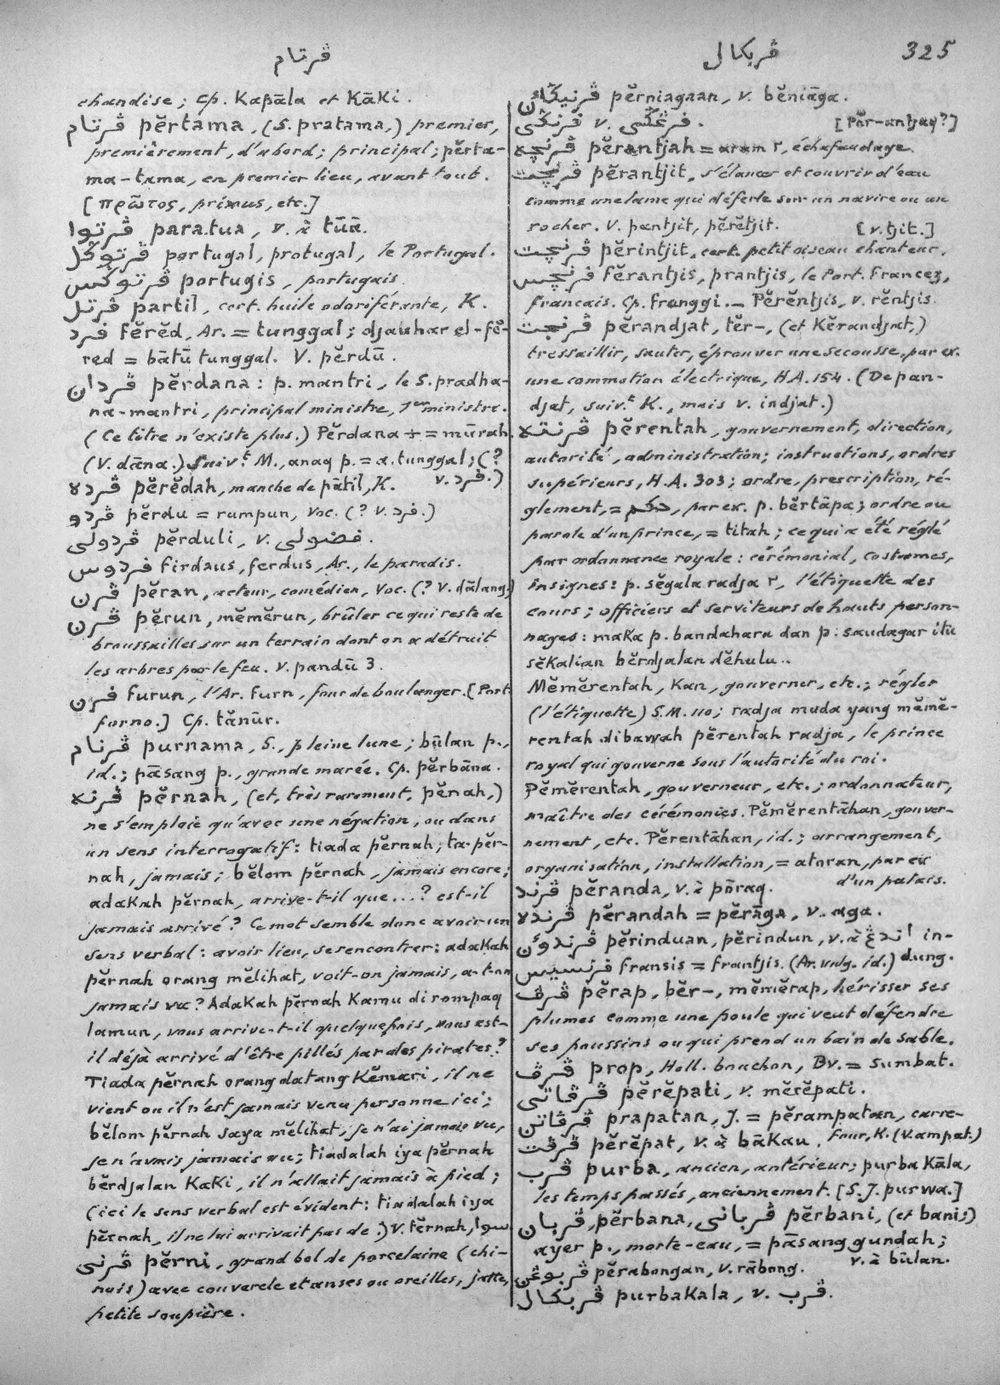 ڤرتام
ڤربکال
325
chandise; Cp. Kapāla et Kāki.
ڤرتام pĕrtama, (S. pratama,) premier,
premièrement, d'abord; principal; pĕrta-
ma-tama, en premier lieu, avant tout.
[πρῶτος, primus, etc.]
ڤرتوا paratua, v. à tūā.
ڤرتوڬل portugal, protugal, le Portugal.
ڤرتوڬس portugis, portugais.
ڤرتل partil, cert. huile odoriferante, K.
فرد fĕrĕd, Ar. = tunggal; djauhar el-fĕ-
red = bātū tunggal. V. pĕrdū.
ڤردان pĕrdana: p. mantri, le S. pradha-
na-mantri, principal ministre, 1er ministre.
(Ce titre n'existe plus.) Pĕrdana ÷ = mūrah.
(V. dāna.) Suivt M., anaq p. = a. tunggal; (?
v. فرد.)
ڤرده pĕrĕdah, manche de pātil, K.
ڤردو pĕrdu = rumpun, Voc. (? v. فرد.)
ڤردولي pĕrduli, v. فضولي.
فردوس firdaus, ferdus, Ar., le paradis.
ڤرن pĕran, acteur, comédien, Voc. (? V. dālang)
ڤرن pĕrun, mĕmĕrun, brûler ce qui reste de
broussailles sur un terrain dont on a détruit
les arbres par le feu. V. pandū 3.
فرن furun, l'Ar. furn, four de boulanger. [Port.
forno.] Cp. tănūr.
ڤرنام purnama, S., pleine lune; būlan p.,
id.; pāsang p., grande marée. Cp. pĕrbāna.
ڤرنه pĕrnah, (et, très rarement, pĕnah,)
ne s'emploie qu'avec une négation, ou dans
un sens interrogatif: tiada pĕrnah; ta-pĕr-
nah, jamais; bĕlom pĕrnah, jamais encore;
adakah pĕrnah, arrive-t-il que...? est-il
jamais arrivé? Ce mot semble donc avoir un
sens verbal: avoir lieu, se rencontrer: adakah
pĕrnah orang mĕlihat, voit-on jamais, a-t-on
jamais vu? Adakah pĕrnah kamu di rompaq
lamun, vous arrive-t-il quelquefois, vous est-
il déjà arrivé d'être pillés par des pirates?
Tiada pĕrnah orang datang kĕmari, il ne
vient ou il n'est jamais venu personne ici;
bĕlom pĕrnah saya mĕlihat, je n'ai jamais vu,
je n'avais jamais vu; tiadalah iya pĕrnah
bĕrdjalan kaki, il n'allait jamais à pied;
(ici le sens verbal est évident: tiadalah iya
pĕrnah, il ne lui arrivait pas de.) V. tĕrnah,
ڤرني pĕrni, grand bol de porcelaine (chi-
nois) avec couvercle et anses ou oreilles, jatte,
petite soupière.
ڤرنيڬان pĕrniagaan, v. bĕniāga.
فرنڬي v. فرڠڬي.
[Pĕr-antjaq?]
ڤرنچه pĕrantjah = aram2, échafaudage.
ڤرنچت pĕrantjit, s'élancer et couvrir d'eau
comme une lame qui déferle sur un navire ou un
rocher. V. pantjit, pĕrĕtjit. [v. tjit.]
ڤرنچت pĕrintjit, cert. petit oiseau chanteur.
فرنچس Fĕrantjis, prantjis, le Port. Francez,
francais. Cp. franggi. – Pĕrĕntjis, v. rĕntjis.
ڤرنجت pĕrandjat, tĕr-, (et Kĕrandjat,)
tressaillir, sauter, éprouver une secousse, par ex.
une commotion électrique, H.A. 154. (De pan-
djat, suivt K., mais v. indjat.)
ڤرنته pĕrentah, gouvernement, direction,
autorité, administration; instructions, ordres
supérieurs, H.A. 303; ordre, prescription, ré-
glement, = حکم, par ex. p. bĕrtāpa; ordre ou
parole d'un prince, = titah; ce qui a été réglé
par ordonnance royale: cérémonial, costumes,
insignes: p. sĕgala radja2, l'étiquette des
cours; officiers et serviteurs de hauts person-
nages: maka p. bandahara dan p. saudagar itu
sĕkalian bĕrdjalan dĕhulu..
Mĕmĕrentah, kan, gouverner, etc.; régler
(l'étiquette) S.M. 110; radja muda yang mĕmĕ-
rentah dibawah pĕrentah radja, le prince
royal qui gouverne sous l'autorité du roi.
Pĕmĕrentah, gouverneur, etc.; ordonnateur,
maître des cérémonies. Pĕmĕrentāhan, gouver-
nement, etc. Pĕrentāhan, id.; arrangement,
organisation, installation, = atoran, par ex
d'un palais.
ڤرند pĕranda, v. à pōraq.
ڤرنده pĕrandah = pĕrāga, v. aga.
ڤرندوڠن pĕrinduan, pĕrindun, v. à اندڠ in-
dung.
فرنسيس Fransis = frantjis. (Ar. vulg. id.)
ڤرڤ pĕrap, bĕr-, mĕmĕrap, hérisser ses
plumes comme une poule qui veut défendre
ses poussins ou qui prend un bain de sable.
ڤرڤ prop, Holl. bouchon, Bv. = sumbat.
ڤرڤاتي pĕrĕpati, v. mĕrĕpati.
ڤرڤاتن prapatan, J. = pĕrampatan, carre-
four, K. (V. ampat.)
ڤرڤت pĕrĕpat, v. à bākau.
ڤرب purba, ancien, antérieur; purba kāla,
les temps passés, anciennement. [S.J. purwa.]
ڤربان pĕrbana, ڤرباني pĕrbani, (et banis)
ayer p., morte-eau, = pāsang gundah;
v. à būlan.
ڤربوڠن pĕrabongan, v. rābong.
ڤربکال purbakala, v. ڤرب.